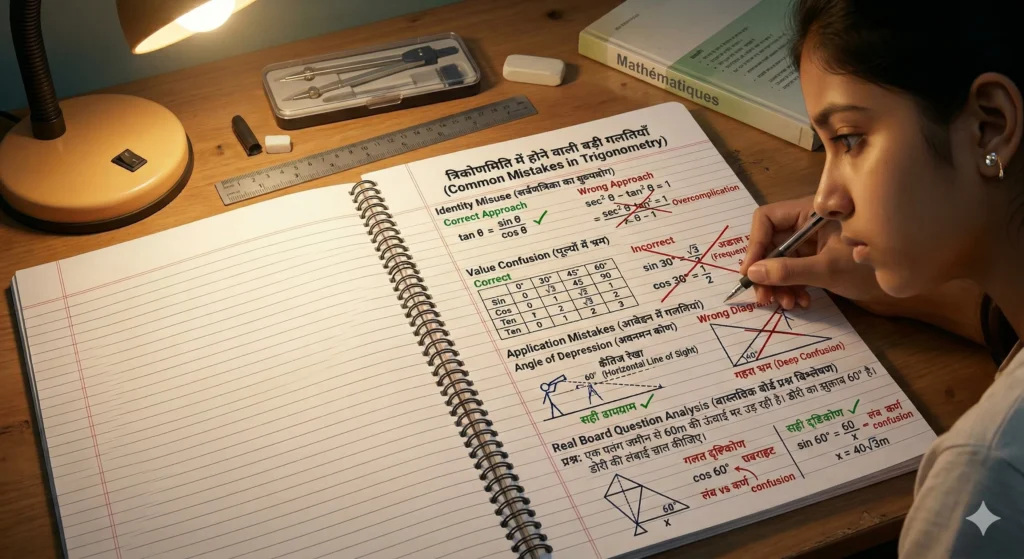 Mathématiques
त्रिकोणमिति में होने वाली बड़ी गलतियाँ
(Common Mistakes in Trigonometry)
Identity Misuse (सर्वणत्रिका का सुव्यायोग)
Correct Approach
tan θ = sin θ / cos θ ✓
Wrong Approach
sec² θ - tan² θ = 1
Overcomplication
Value Confusion (मूल्यों में भ्रम)
Correct
0° 30° 45° 60°
Sin 0 √3 45 90
Cos
Ten
Ten 0
Incorrect
sin 30° √3
cos 30° = 1/2
(Frequent
Application Mistakes (आवेदन में गलतियां)
Angle of Depression (अवनमन कोण)
कैतिज रेखा
60° (Horizontal Line of Sight)
सही डायग्राम ✓
Wrong Diagram
40°
गहरा भ्रम (Deep Confusion)
Real Board Question Analysis (वास्तविक बोर्ड प्रश्न विश्लेषण)
प्रश्न: एक पतंग जमीन से 60m की ऊंचाई पर उड़ रही है। डोरी का झुकाव 60° है।
डोरी की लंबाई ज्ञात कीजिए।
60°
x
गलत दृष्टिकोण
cos 60° घबराहट
लंब vs कर्ण confusion
सही दृष्टिकोण ✓
sin 60° = 60/x
लंब कर्ण
confusion
x = 40√3m